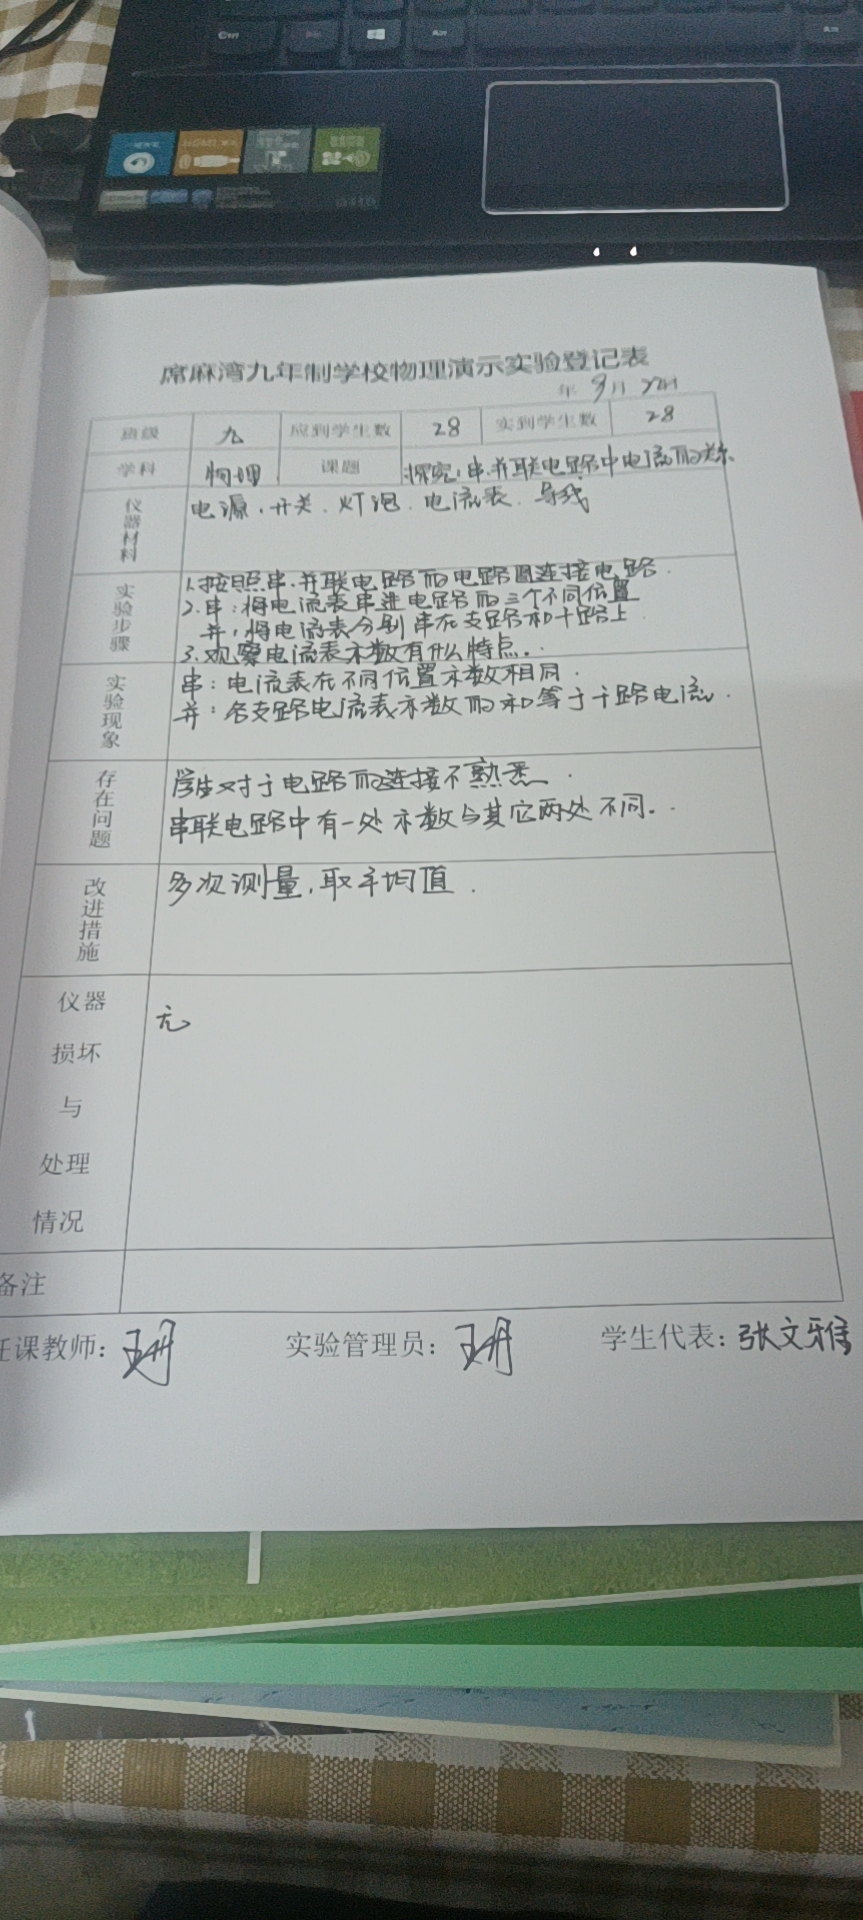 Ctrl
Alt
席麻湾九年制学校物理演示实验登记表
年 9月 22日
班级 九 应到学生数 28 实到学生数 28
学科 物理 课题 探究:串.并联电路中电流的关系
仪器材料 电源.开关.灯泡.电流表.导线
实验步骤 1.按照串.并联电路的电路图连接电路.
2.串:将电流表串进电路的三个不同位置
并:将电流表分别串在支路和干路上
3.观察电流表示数有什么特点.
实验现象 串:电流表在不同位置示数相同.
并:各支路电流表示数的和等于干路电流.
存在问题 学生对于电路的连接不熟悉.
串联电路中有一处示数与其它两处不同.
改进措施 多次测量,取平均值.
仪器损坏与处理情况 无
备注
任课教师: 实验管理员: 学生代表:张文雅